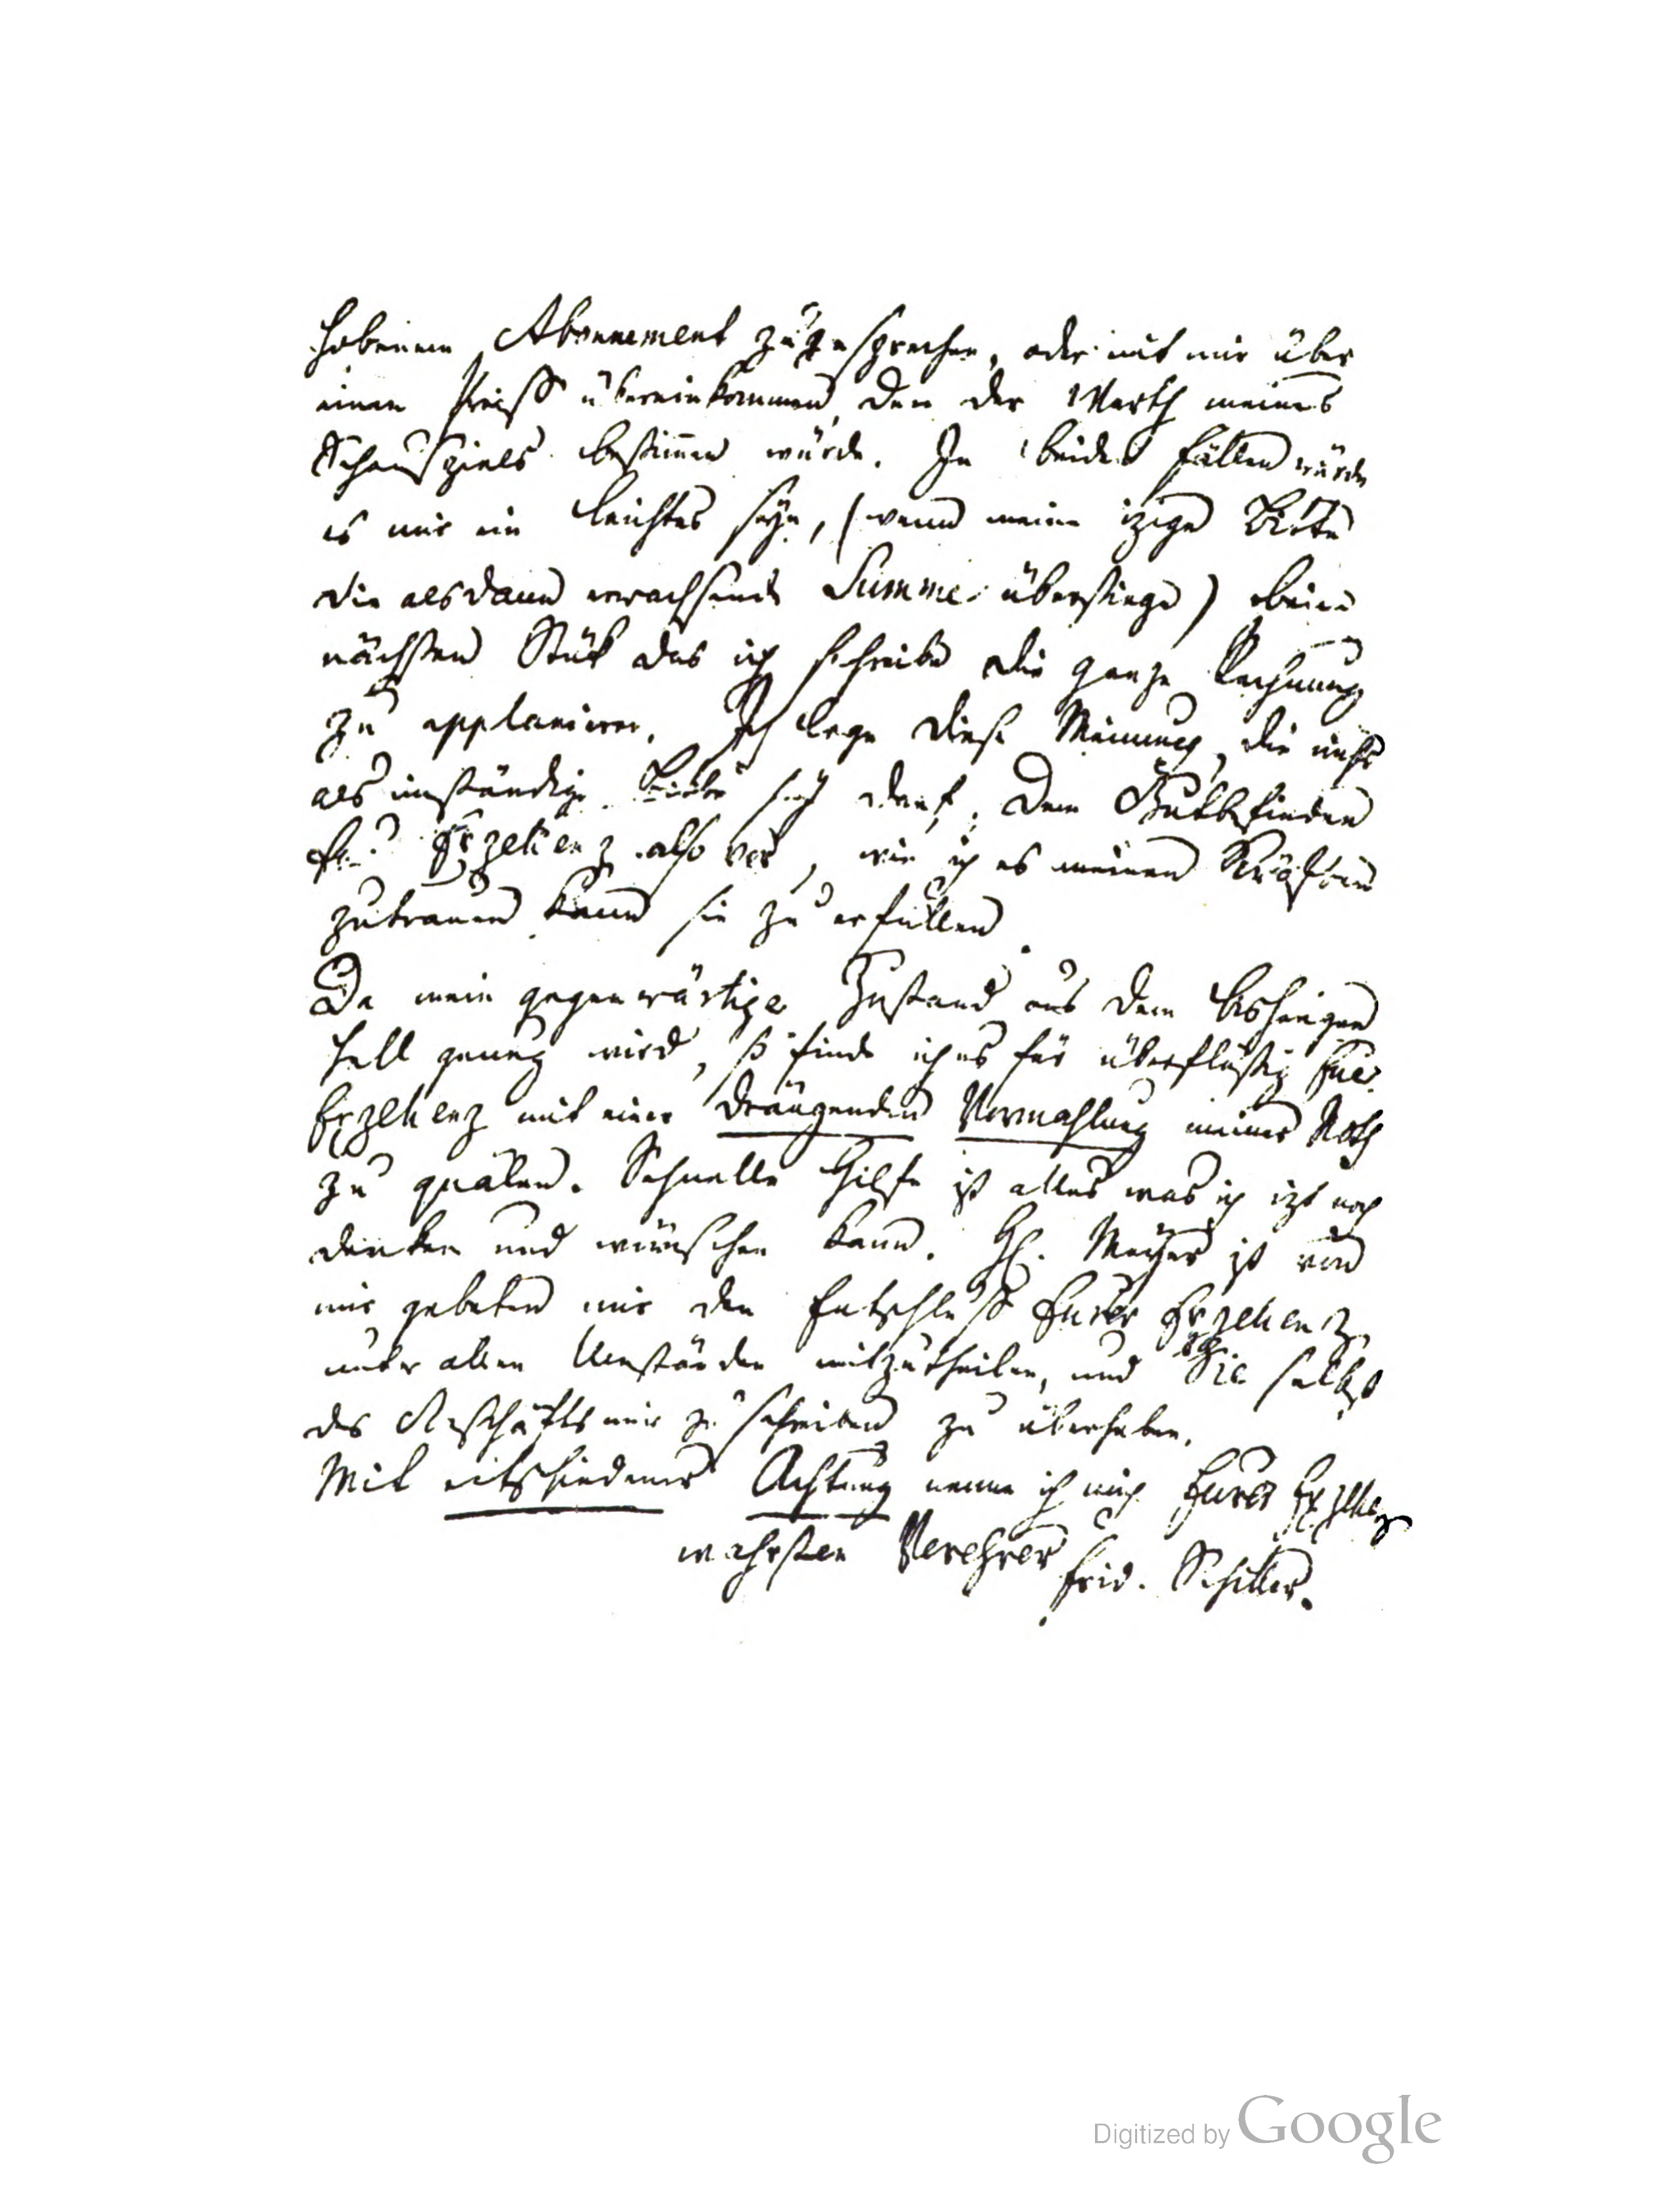 hobenem Abonnement zuzusprechen, oder mit mir über
einen Preiß übereinkommen, den der Werth meines
Schauspiels bestimmen würde. In beiden Fällen würde
es mir ein leichtes seyn, (wenn meine izige Bitte
die alsdann erwachsende Summe überstiege) beim
nächsten Stük das ich schreibe die ganze Rechnung
zu applanieren. Ich lege diese Meinung, die nichts
als inständige Bitte seyn darf, dem Gutbefinden
Eur. Exzellenz also vor, wie ich es meinen Kräften
zutrauen kann sie zu erfüllen.
Da mein gegenwärtiger Zustand aus dem bisherigen
hell genug wird, so finde ich es für überflüßig Eure
Exzellenz mit einer drängenden Vormahlung meiner Noth
zu quälen. Schnelle Hilfe ist alles was ich izt noch
denken und wünschen kann. H. Meyer ist von
mir gebeten mir den Entschluß Eurer Exzellenz
unter allen Umständen mitzutheilen, und Sie selbst
des Geschäfts mir zu schreiben zu überheben.
Mit entschiedener Achtung nenne ich mich Eurer Exzellenz
wahrsten Verehrer
Frid. Schiller.
Digitized by Google